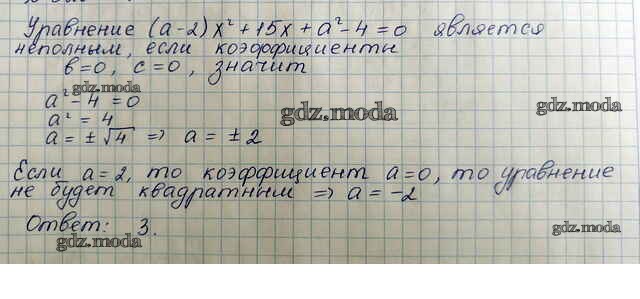 Уравнение (а-2)x² + 15x + a² - 4 = 0 является
неполным, если коэффициенты
в=0, с=0, значит
gdz.moda
a² - 4 = 0
gdz.moda
gdz.moda
a² = 4
a = ± √4 => a = ± 2
Если a = 2, то коэффициент a=0, то уравнение
не будет квадратным => a = -2
Ответ: 3.
gdz.moda
gdz.moda